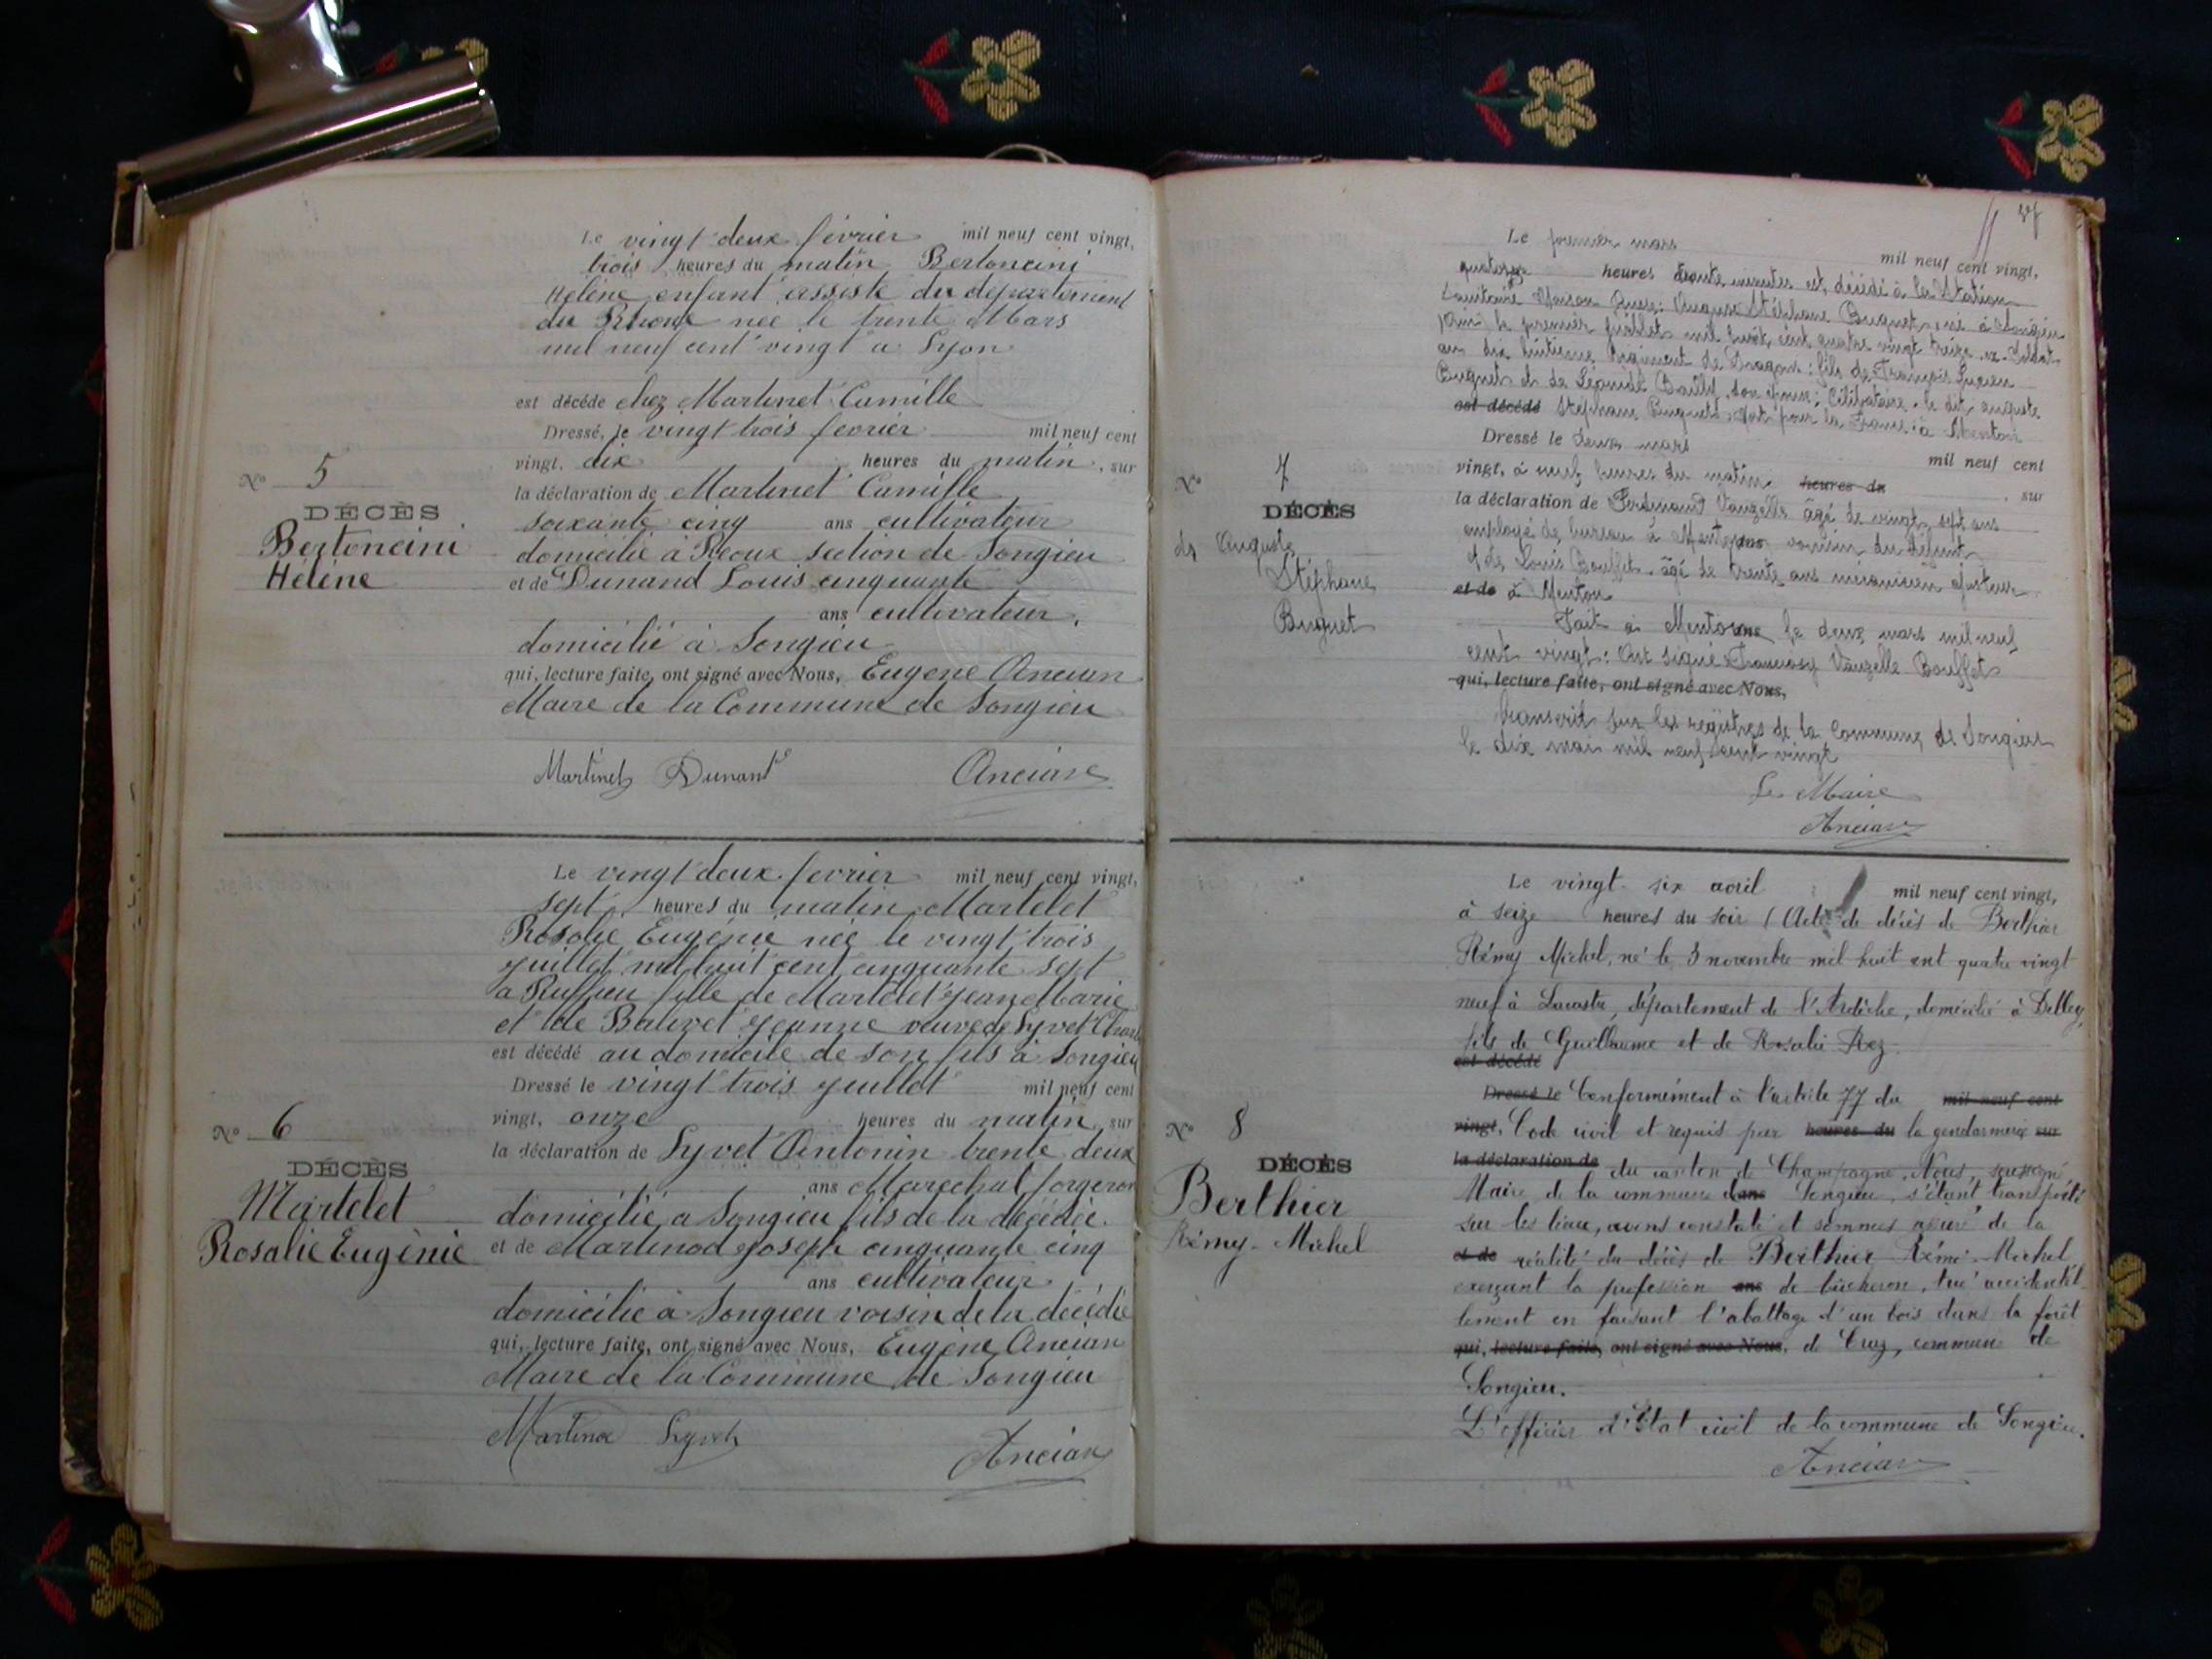 Le vingt deux février mil neuf cent vingt,
trois heures du matin Bertoncini
Hélène enfant assisté du département
du Rhône née le trente Mars
mil neuf cent vingt a Lyon
est décédé chez Martinet Camille
Dressé, le vingt trois fevrier mil neuf cent
vingt, dix heures du matin, sur
la déclaration de Martinet Camille
soixante cinq ans cultivateur
domicilié à Reoux section de Songieu
et de Dunand Louis cinquante
ans cultivateur,
domicilié à Songieu
qui, lecture faite, ont signé avec Nous, Eugene Ancian
Maire de la Commune de Songieu
Martinet Dunant Ancian
No 5
DÉCÈS
Bertoncini
Hélène
Le vingt deux fevrier mil neuf cent vingt,
sept heures du matin Martelet
Rosalie Eugénie née le vingt trois
juillet mil huit cent cinquante sept
a Ruffieu fille de Martelet Jean Marie
et de Jeanne veuve de Syvet
est décédé au domicile de son fils à Songieu
Dressé le vingt trois juillet mil neuf cent
vingt, onze heures du matin, sur
la déclaration de Syvet Antonin trente deux
ans Marechal forgeron
domicilié a Songieu fils de la décédée.
et de Martinod Joseph cinquante cinq
ans cultivateur
domicilié à Songieu voisin de la décédée
qui, lecture faite, ont signé avec Nous, Eugène Ancian
Maire de la Commune de Songieu
Martinod Syvet Ancian
No 6
DÉCÈS
Martelet
Rosalie Eugènie
Le premier mars mil neuf cent vingt,
quatorze heures trente minutes est décédé à la Station
Sanitaire Maison Auguste Stéphane Buguet, né à Songieu
le premier juillet mil huit cent quatre vingt treize ex-Soldat
au dix huitième Régiment de Dragons: fils de François Lucien
Buguet et de Léonide son épouse: Célibataire. le dit auguste
est décédé Stéphane Buguet, mort pour la France: à Menton
Dressé le deux mars mil neuf cent
vingt, à neuf heures du matin heures du, sur
la déclaration de Ferdinand Vauzelle âgé de vingt sept ans
employé de bureau à Menton voisin du défunt
et de Louis Bouffet âgé de trente ans mécanicien ajusteur
et de à Menton
Fait a Menton le deux mars mil neuf
cent vingt: Ont signé Vauzelle Bouffet
qui, lecture faite, ont signé avec Nous,
transcrit sur les registres de la Commune de Songieu
le dix mai mil neuf cent vingt
Le Maire
Ancian
No 7
DÉCÈS
de Auguste
Stéphane
Buguet
Le vingt-six avril mil neuf cent vingt,
à seize heures du soir (Acte de décès de Berthier
Rémy Michel, né le 3 novembre mil huit cent quatre vingt
neuf à département de l'Ardèche, domicilié à Belley,
fils de Guillaume et de Rosalie Rey.
est décédé
Dressé le Conformément à l'article 77 du mil neuf cent
vingt, Code civil et requis par heures du la gendarmerie sur
la déclaration de du canton de Champagne, Nous, soussigné
Maire de la commune dans Songieu, s'étant transporté
sur les lieux, avons constaté et sommes assuré de la
et de réalité du décès de Berthier Rémi-Michel
exerçant la profession ans de bûcheron, tué accidentel-
lement en faisant l'abattage d'un bois dans la forêt
qui, lecture faite, ont signé avec Nous, de commune de
Songieu.
L'officier d'Etat civil de la commune de Songieu.
Ancian
No 8
DÉCÈS
Berthier
Rémy-Michel